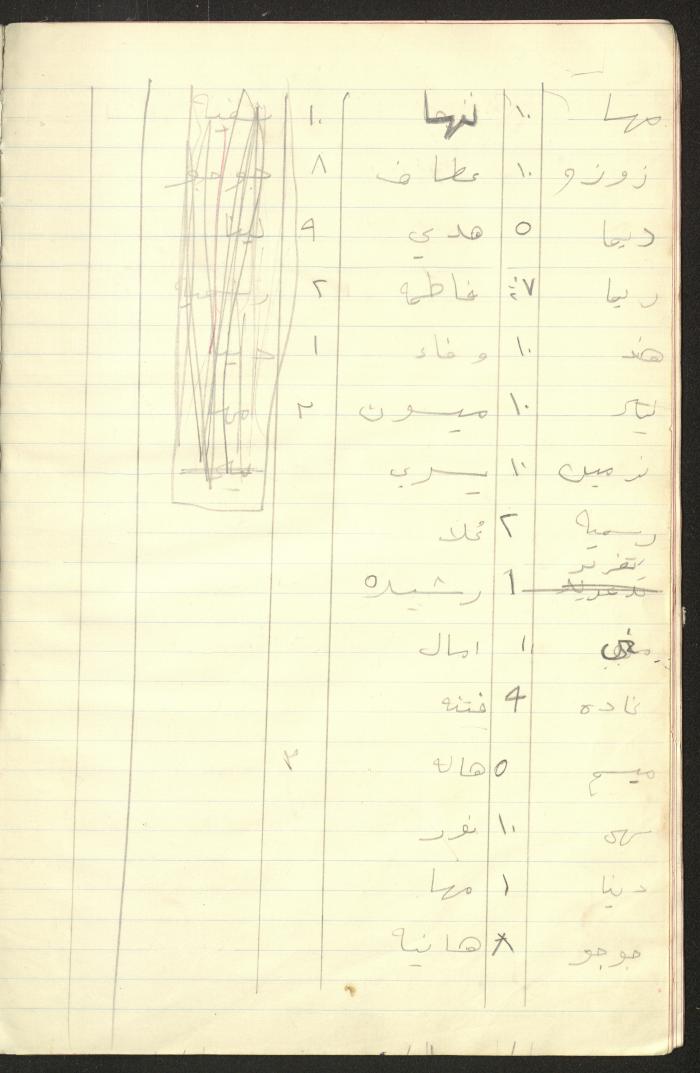 مها ١٠ نهى ١٠
زوزو ١٠ عطاف ٨ جوجو
ديما ٥ هدي ٩ لينا
ريما ٧ فاطمه ٢ رسميه
هند ١٠ وفاء ١
ليلى ١٠ ميسون ٣ مها
نرمين ١٠ يسرى
رسميه ٢ عُلا
تغريد
١ رشيده
منى ١٠ امال
غاده ٩ فتنه
ميسم ٥ هاله ٣
سهى ١٠ نور
دينا ١ مها
جوجو ٨ هانيه